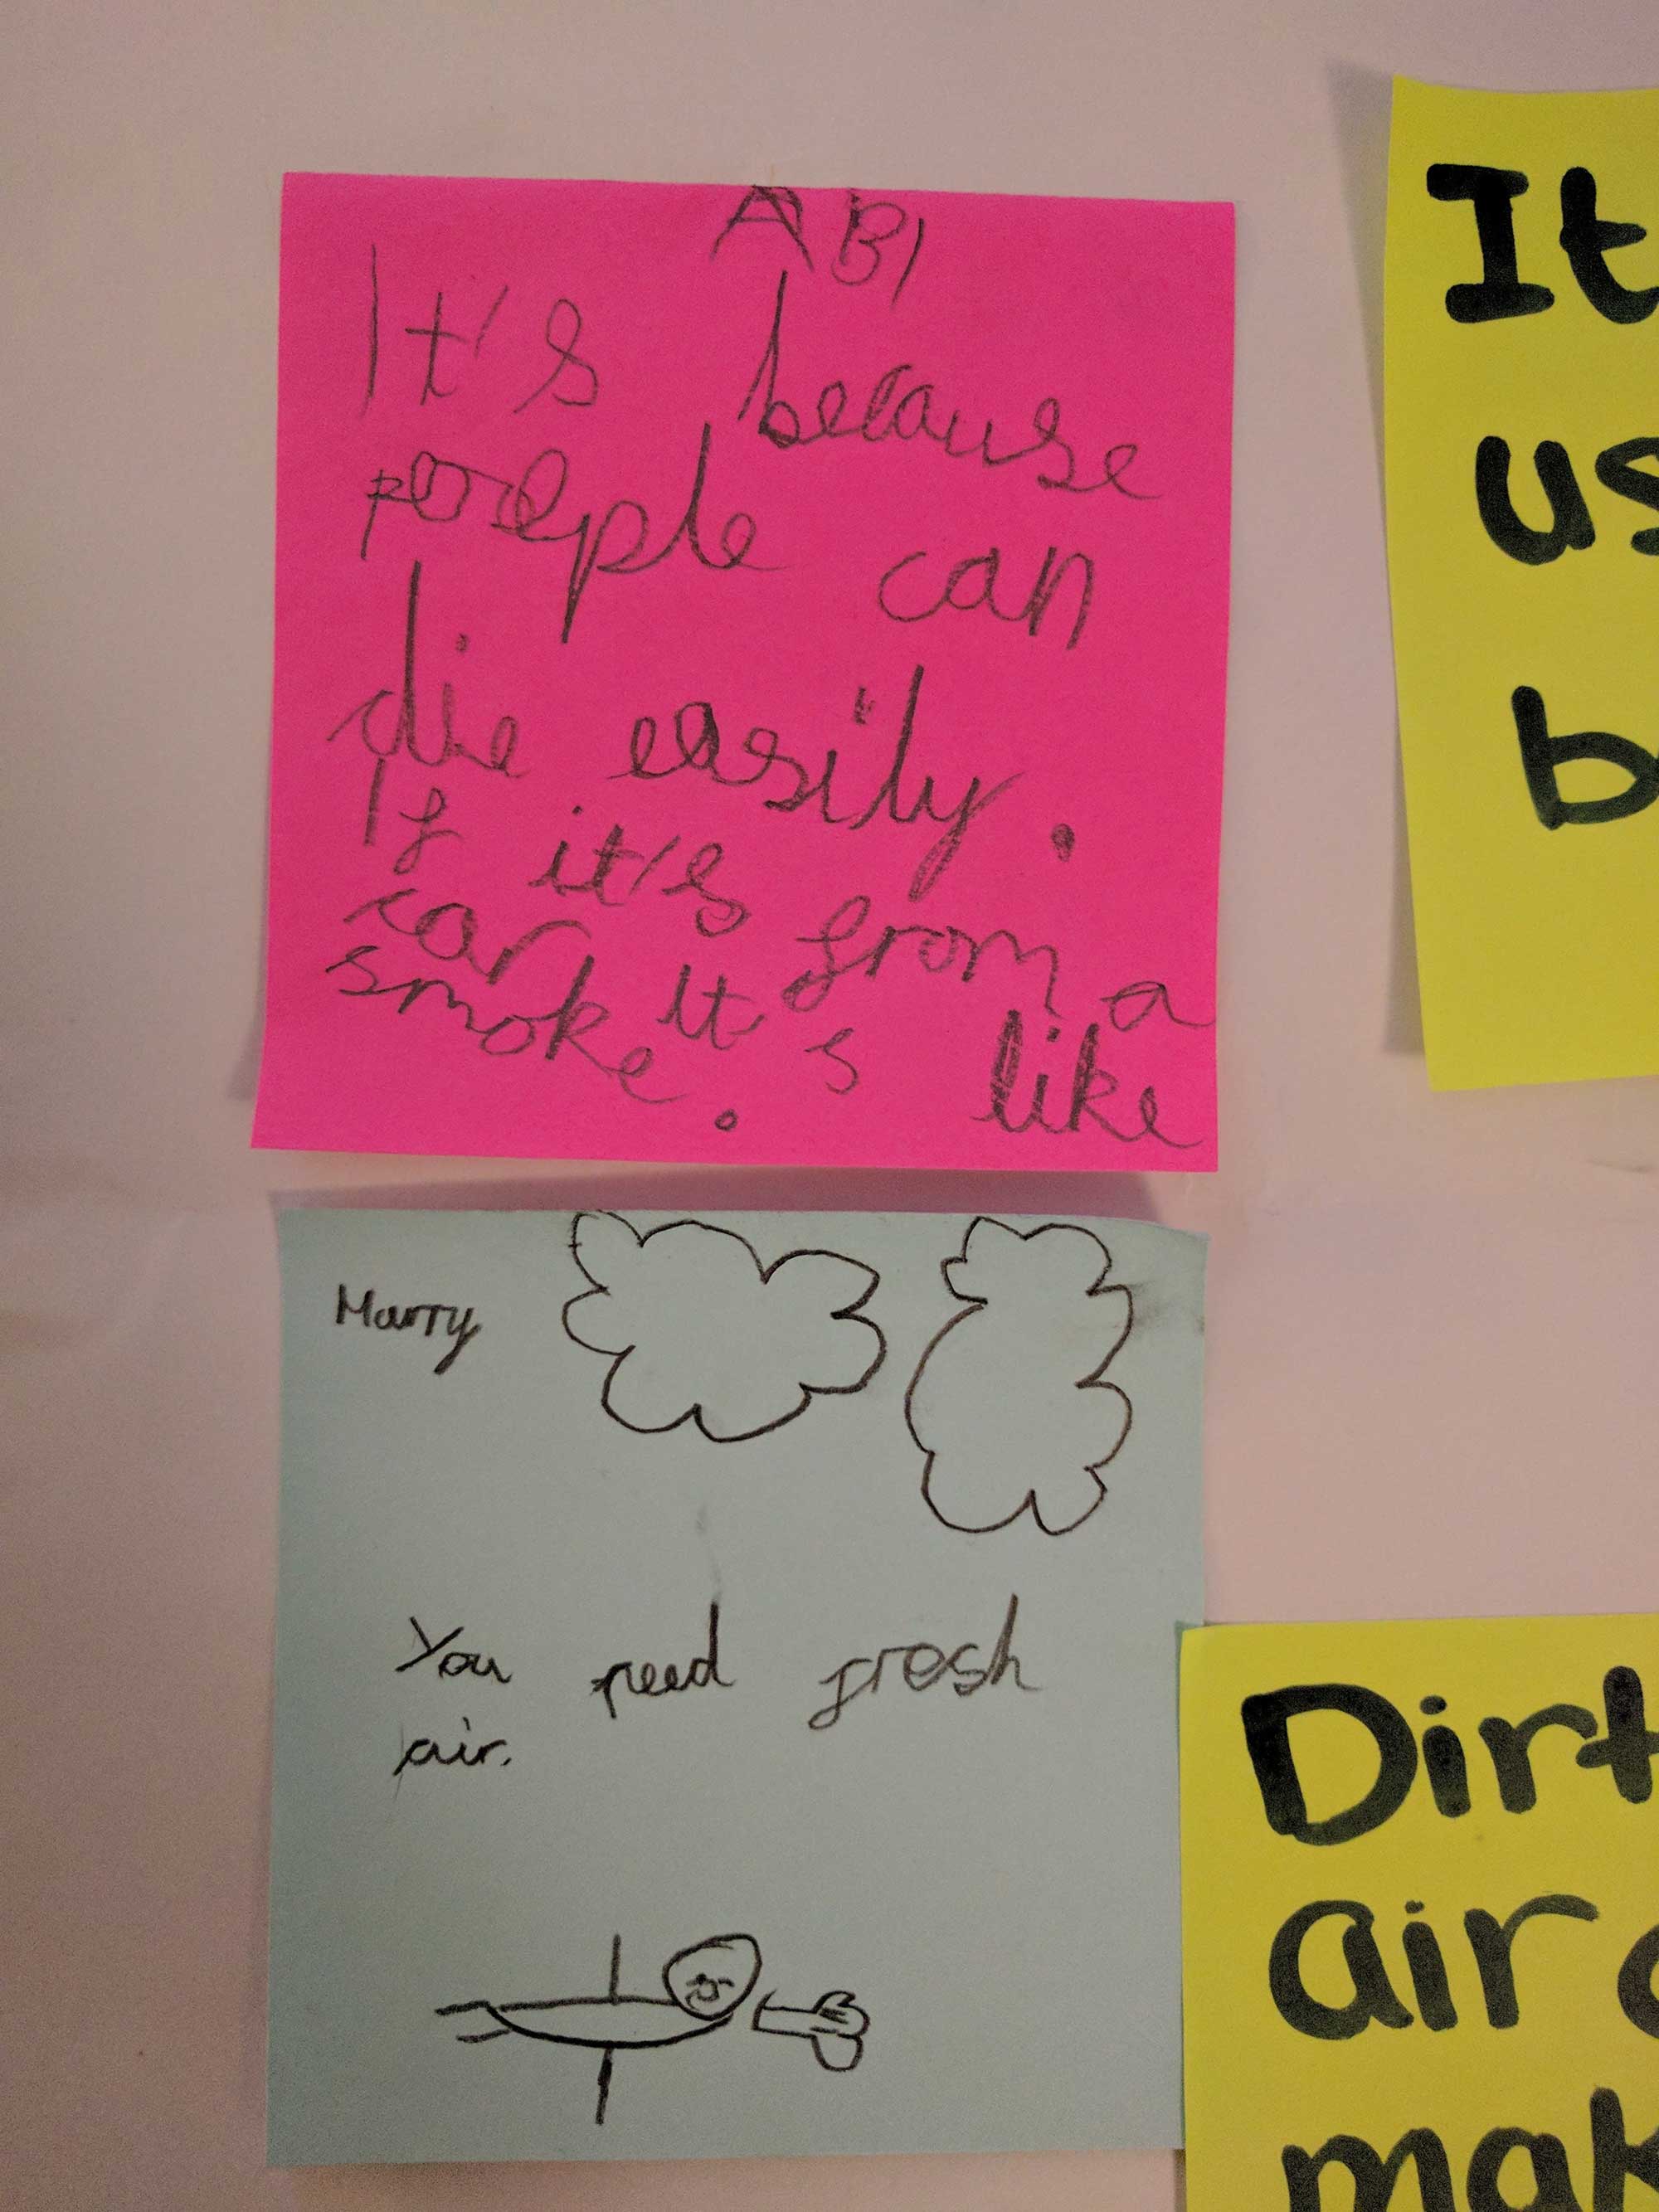 ABI
It's because
poeple can
die easily.
If it's from a
car It s like
smoke.
Marry
You need fresh
air.
It
us
b
Dirt
air
mak